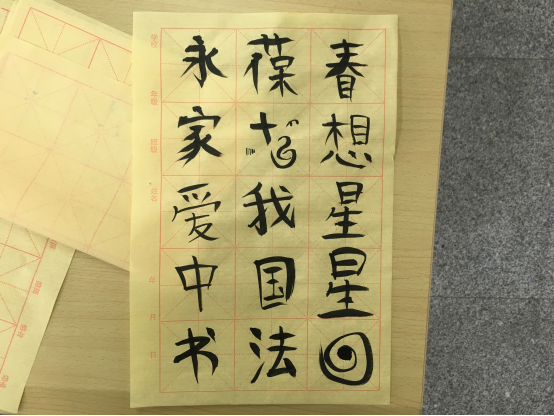 永葆春
家想
爱我星
中国星
书法
年 月 日